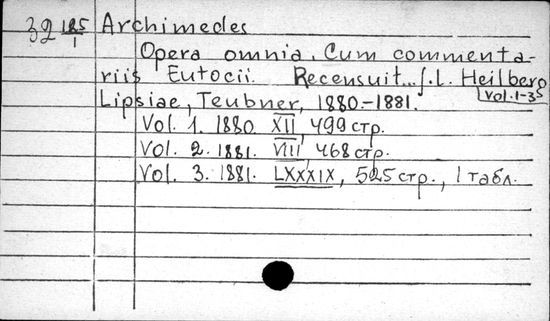 32 185/1 Archimedes
Opera omnia. Cum commenta-
riis Eutocii. Recensuit... J.L. Heilberg
Vol. 1-3
Lipsiae, Teubner, 1880-1881.
Vol. 1. 1880. XII, 499 стр.
Vol. 2. 1881. VIII, 468 стр.
Vol. 3. 1881. LXXXIX, 525 стр., 1 табл.